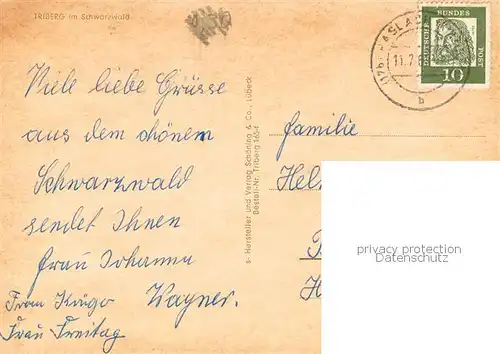 TRIBERG im Schwarzwald
Viele liebe Grüsse
aus dem schönem
Schwarzwald
sendet Ihnen
Frau Johanna
Wagner.
Frau Krüge
Frau Freitag
s- Hersteller und Verlag Schöning & Co., Lübeck
Bestell-Nr. Triberg 165 f
HASLA
11.7.6
b
DEUTSCHE
BUNDES
POST
10
Familie
Hel
H
privacy protection
Datenschutz